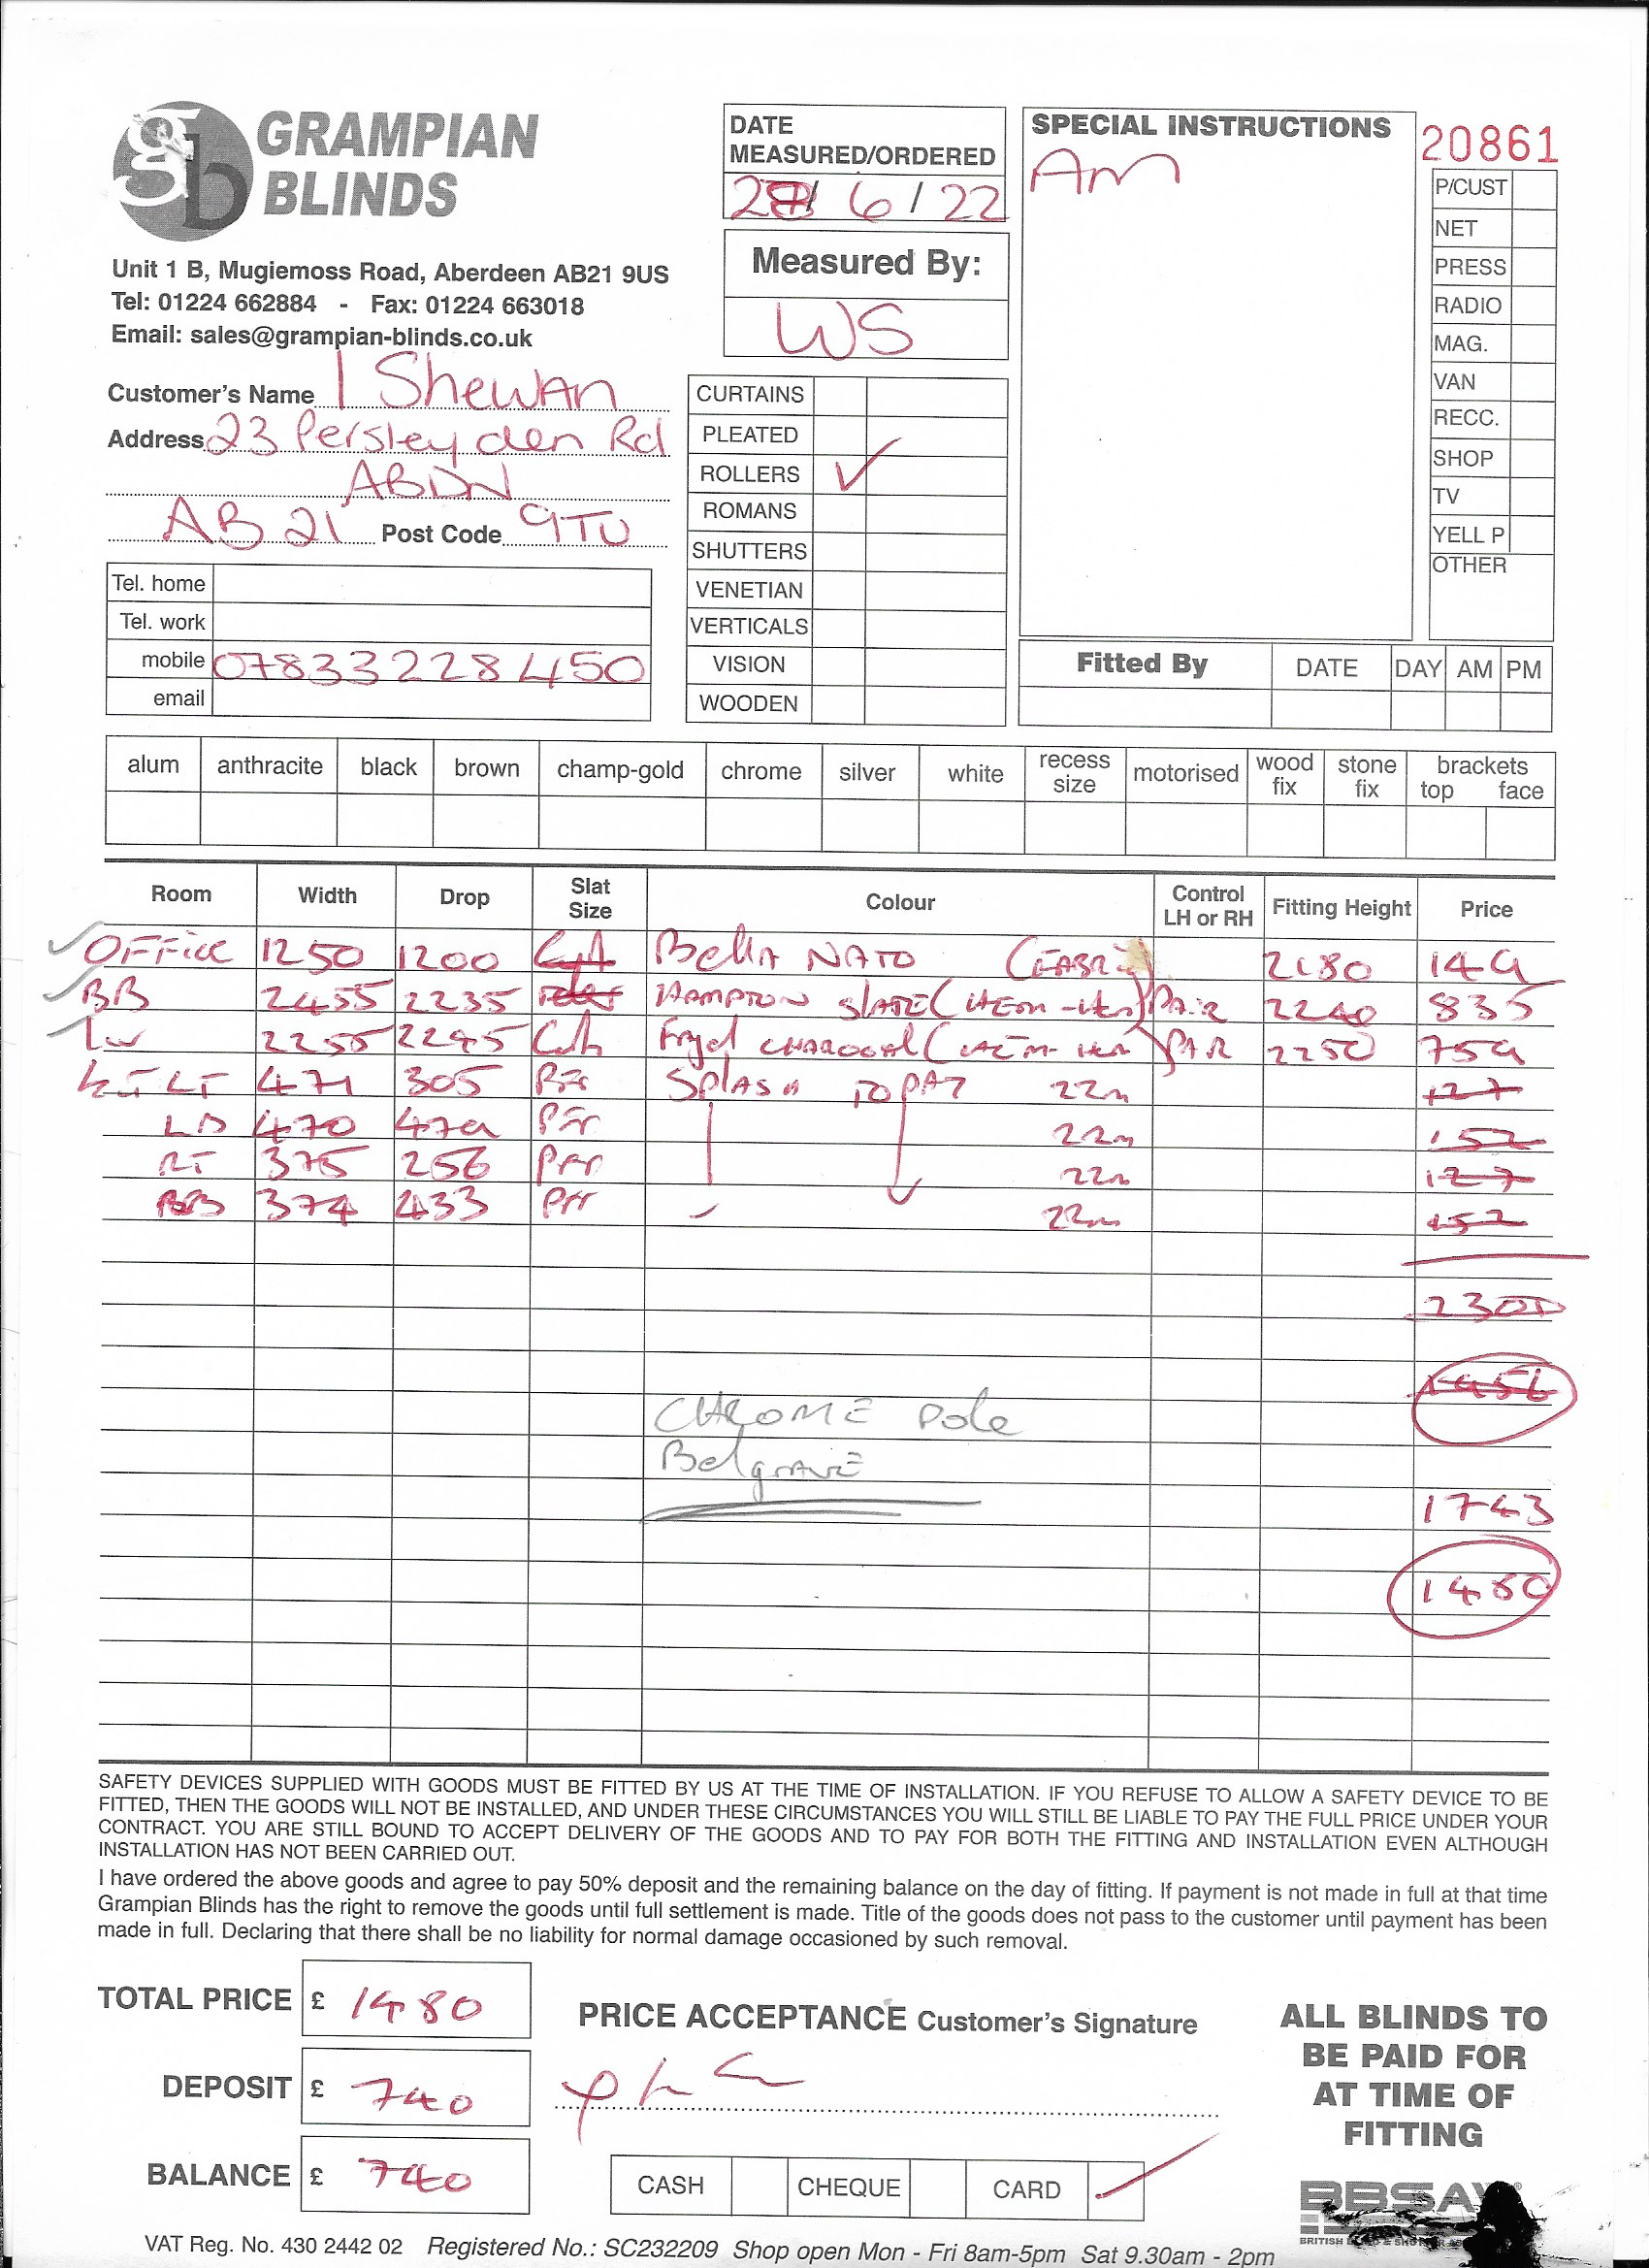 gb GRAMPIAN BLINDS
Unit 1 B, Mugiemoss Road, Aberdeen AB21 9US
Tel: 01224 662884 - Fax: 01224 663018
Email: sales@grampian-blinds.co.uk
Customer's Name I Shewan
Address 23 Persley den Rd
ABDN
AB 21 Post Code 9TU
Tel. home
Tel. work
mobile 07833228450
email
DATE MEASURED/ORDERED
6/22
Measured By:
WS
CURTAINS
PLEATED
ROLLERS ✓
ROMANS
SHUTTERS
VENETIAN
VERTICALS
VISION
WOODEN
SPECIAL INSTRUCTIONS
Am
20861
P/CUST
NET
PRESS
RADIO
MAG.
VAN
RECC.
SHOP
TV
YELL P
OTHER
Fitted By DATE DAY AM PM
alum anthracite black brown champ-gold chrome silver white recess size motorised wood fix stone fix brackets top face
Room Width Drop Slat Size Colour Control LH or RH Fitting Height Price
OFFICE 1250 1200 Bella NATO 2180 149
BB 2455 2235 HAMPTON SLATE PAIR 2240 835
2255 2295 CHARCOAL PAIR 2250 759
471 305 SPLASH 22m 127
470 479 22m 152
RT 375 256 22m 127
374 433 22m 152
2300
1956
CHROME Pole
Belgrave
1743
1480
SAFETY DEVICES SUPPLIED WITH GOODS MUST BE FITTED BY US AT THE TIME OF INSTALLATION. IF YOU REFUSE TO ALLOW A SAFETY DEVICE TO BE
FITTED, THEN THE GOODS WILL NOT BE INSTALLED, AND UNDER THESE CIRCUMSTANCES YOU WILL STILL BE LIABLE TO PAY THE FULL PRICE UNDER YOUR
CONTRACT. YOU ARE STILL BOUND TO ACCEPT DELIVERY OF THE GOODS AND TO PAY FOR BOTH THE FITTING AND INSTALLATION EVEN ALTHOUGH
INSTALLATION HAS NOT BEEN CARRIED OUT.
I have ordered the above goods and agree to pay 50% deposit and the remaining balance on the day of fitting. If payment is not made in full at that time
Grampian Blinds has the right to remove the goods until full settlement is made. Title of the goods does not pass to the customer until payment has been
made in full. Declaring that there shall be no liability for normal damage occasioned by such removal.
TOTAL PRICE £ 1480
DEPOSIT £ 740
BALANCE £ 740
PRICE ACCEPTANCE Customer's Signature
CASH CHEQUE CARD ✓
ALL BLINDS TO
BE PAID FOR
AT TIME OF
FITTING
BBSA
BRITISH
VAT Reg. No. 430 2442 02 Registered No.: SC232209 Shop open Mon - Fri 8am-5pm Sat 9.30am - 2pm